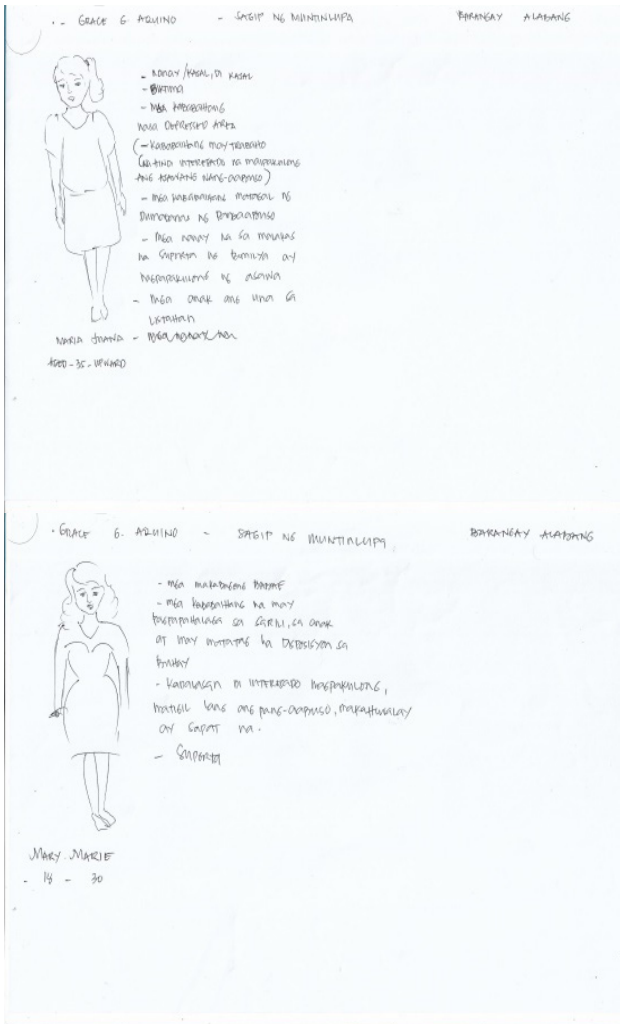 GRACE G. AQUINO - SAGIP NG MUNTINLUPA BARANGAY ALABANG
- NANAY /KASAL, DI KASAL
- BIKTIMA
- MGA KABABAIHANG
NASA DEPRESSED AREA
(- KABABAIHANG MAY TRABAHO
INTERESADO NA MAIPAKULONG
ANG ASAWANG NANG-AABUSO)
- MGA KABABAIHANG MATAGAL NG
DUMARANAS NG PANG-AABUSO
- MGA NANAY NA SA MALAKAS
NA SUPORTA NG PAMILYA AY
NAGPAPAKULONG NG ASAWA
- MGA ANAK ANG UNA SA
LISTAHAN
MARIA JUANA -
AGED - 35 - UPWARD
· GRACE G. AQUINO - SAGIP NG MUNTINLUPA BARANGAY ALABANG
- MGA MAKABAGONG BABAE
- MGA KABABAIHANG NA MAY
PAGPAPAHALAGA SA SARILI, SA ANAK
AT MAY MATATAG NA DISPOSISYON SA
BUHAY
- KADALASAN DI INTERESADO MAGPAKULONG,
MATIGIL LANG ANG PANG-AABUSO, MAKAHIWALAY
AY SAPAT NA.
- SUPORTA
MARY MARIE
- 18 - 30